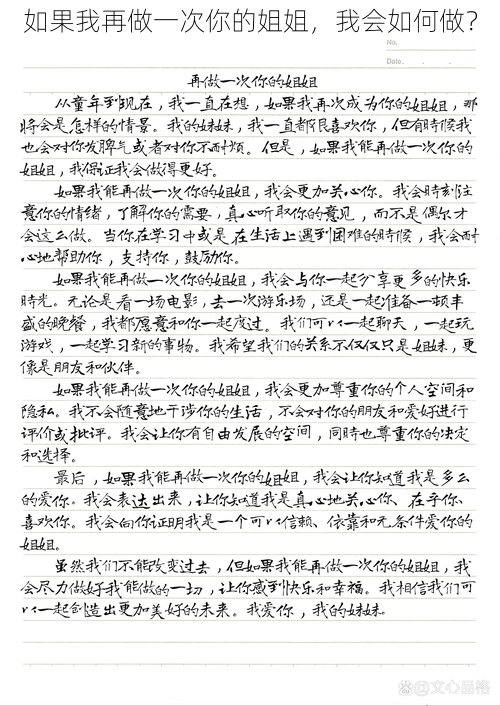 如果我再做一次你的姐姐，我会如何做？
No.
Date. . .
再做一次你的姐姐
从童年到现在，我一直在想，如果我再次成为你的姐姐，那
将会是怎样的情景。我的妹妹，我一直都很喜欢你，但有时候我
也会对你发脾气或者对你不耐烦。但是，如果我能再做一次你的
姐姐，我保证我会做得更好。
如果我能再做一次你的姐姐，我会更加关心你。我会时刻注
意你的情绪，了解你的需要，真心听取你的意见，而不是偶尔才
会这么做。当你在学习中或是在生活上遇到困难的时候，我会耐
心地帮助你，支持你，鼓励你。
如果我能再做一次你的姐姐，我会与你一起分享更多的快乐
时光。无论是看一场电影，去一次游乐场，还是一起准备一顿丰
盛的晚餐，我都愿意和你一起度过。我们可以一起聊天，一起玩
游戏，一起学习新的事物。我希望我们的关系不仅仅只是姐妹，更
像是朋友和伙伴。
如果我能再做一次你的姐姐，我会更加尊重你的个人空间和
隐私。我不会随意地干涉你的生活，不会对你的朋友和爱好进行
评价或批评。我会让你有自由发展的空间，同时也尊重你的决定
和选择。
最后，如果我能再做一次你的姐姐，我会让你知道我是多么
的爱你。我会表达出来，让你知道我是真心地关心你、在乎你、
喜欢你。我会向你证明我是一个可以信赖、依靠和无条件爱你的
姐姐。
虽然我们不能改变过去，但如果我能再做一次你的姐姐，我
会尽力做好我能做的一切，让你感到快乐和幸福。我相信我们可
以一起创造出更加美好的未来。我爱你，我的妹妹。
@文心品格